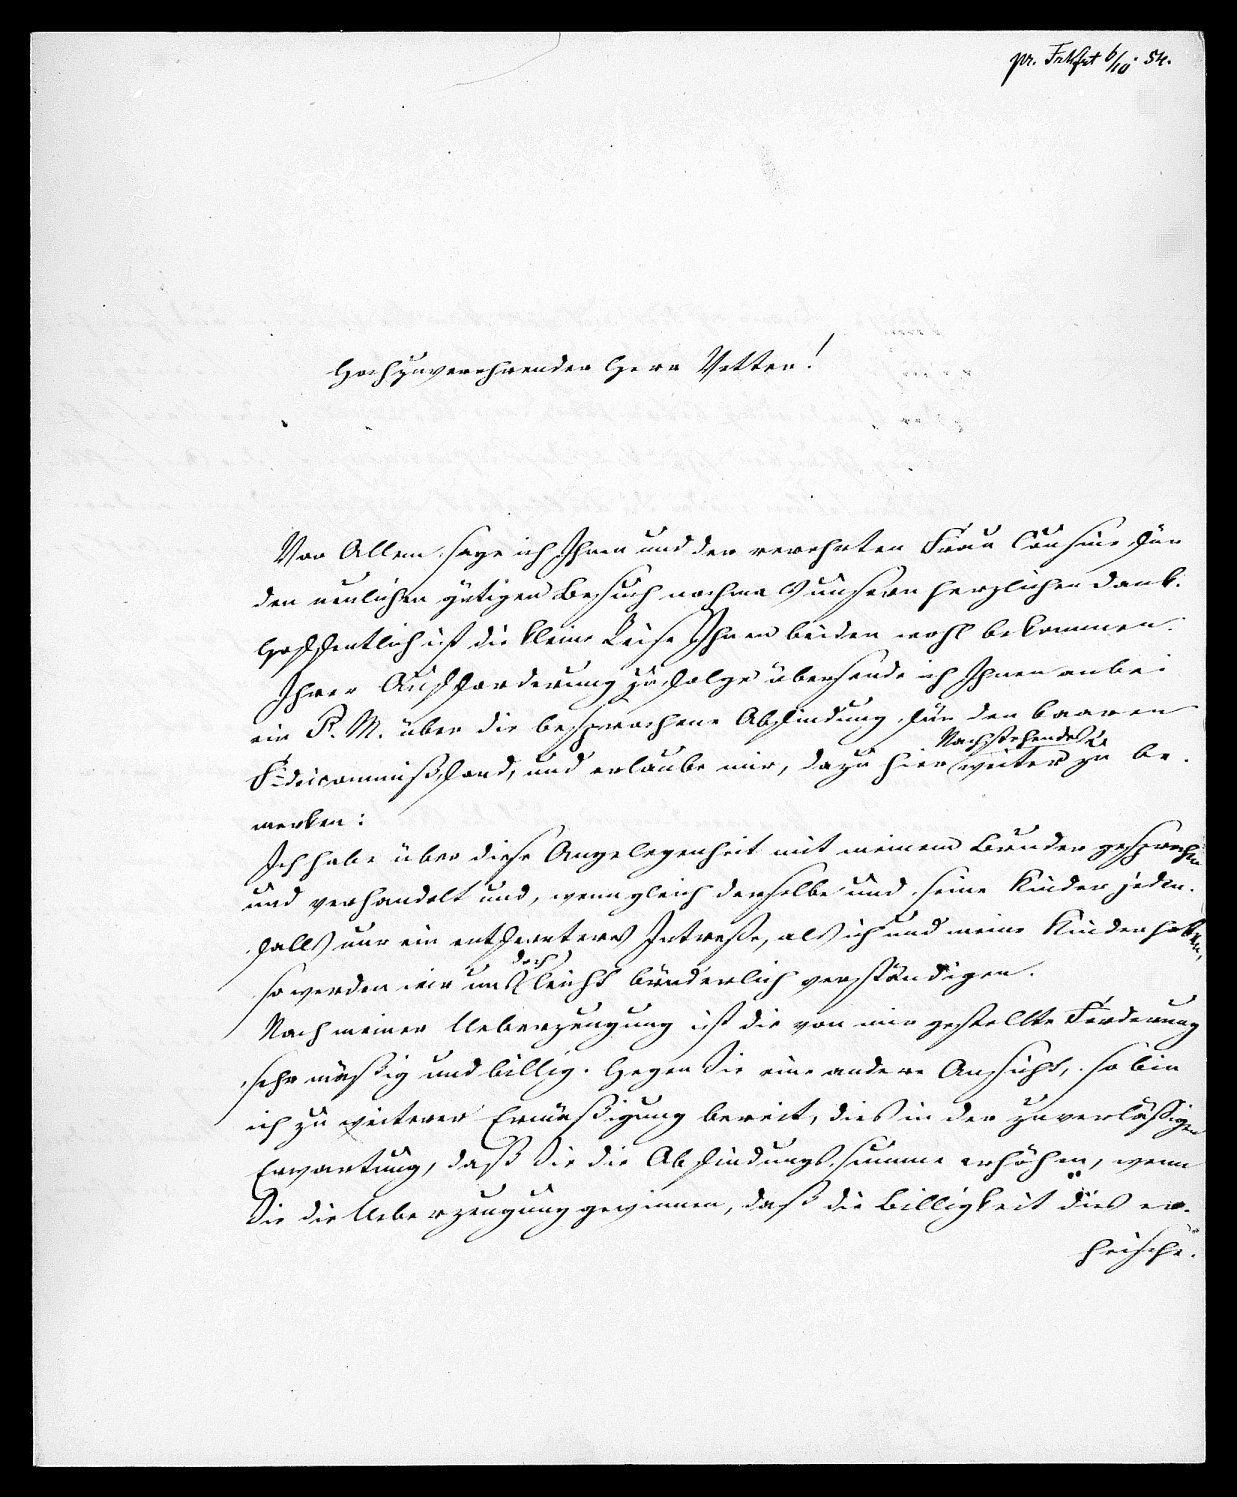 pr. Frkfrt 6/10 54.
Hochzuverehrender Herr Vetter!
Vor Allem sage ich Ihnen und der verehrten Frau Cousine für
den neulichen gütigen Besuch nochmals unsern herzlichen Dank.
Hoffentlich ist die kleine Reise Ihnen beiden wohl bekommen.
Ihrer Aufforderung zufolge übersende ich Ihnen anbei
ein P. M. über die besprochene Abfindung für den baaren
Nachstehendes
Fideicommißfond, und erlaube mir, dazu hier weiter zu be-
merken:
Ich habe über diese Angelegenheit mit meinem Bruder gesprochen
und verhandelt und, wenngleich derselbe und seine Kinder jeden-
falls nur ein entfernteres Intresse, als ich und meine Kinder haben,
doch
so werden wir uns leicht brüderlich verständigen.
Nach meiner Ueberzeugung ist die von mir gestellte Forderung
sehr mäßig und billig. Hegen Sie eine andere Ansicht, so bin
ich zu weiterer Ermäßigung bereit, dies in der zuverläßigen
Erwartung, daß Sie die Abfindungssumme erhöhen, wenn
Sie die Ueberzeugung gewinnen, daß die Billigkeit dies er-
heische.